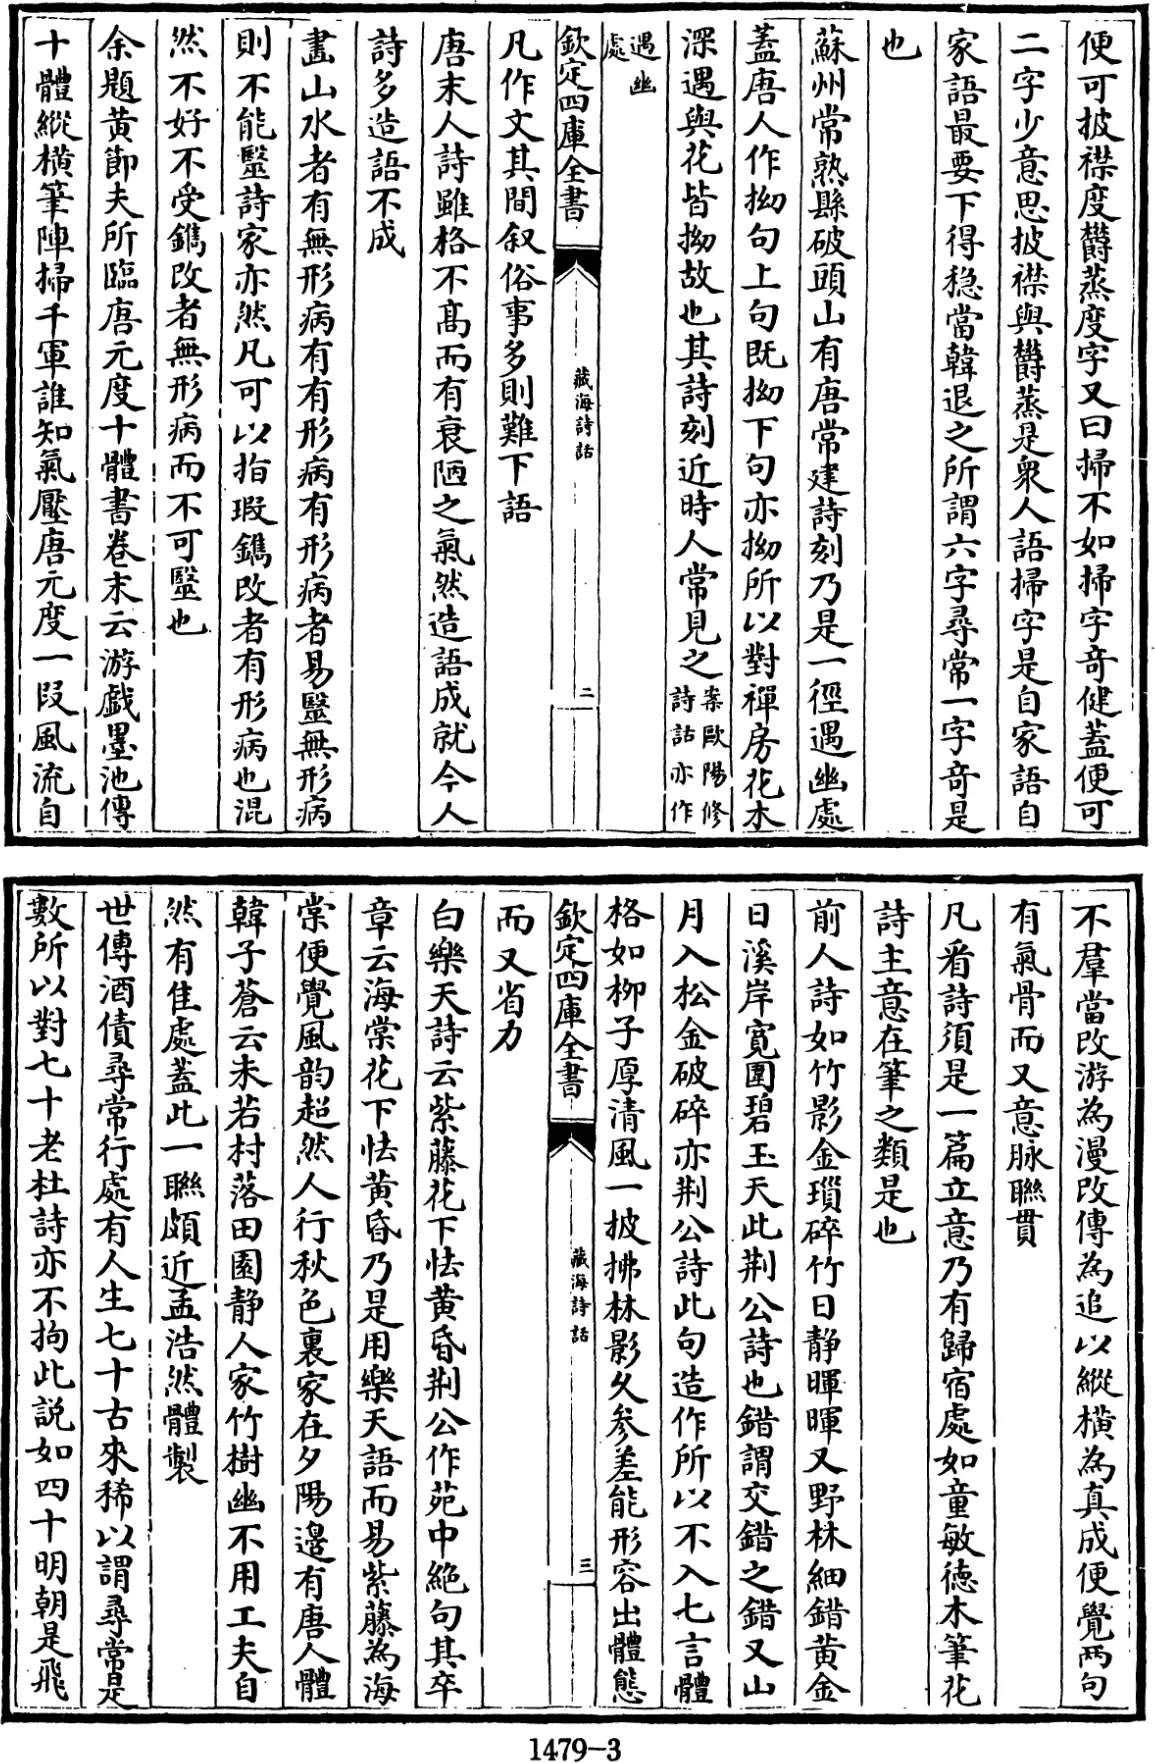 便可披襟度欝蒸度字又曰掃不如掃字奇健蓋便可
二字少意思披襟與欝蒸是衆人語掃字是自家語自
家語最要下得穏當韓退之所謂六字尋常一字奇是
也
蘇州常熟縣破頭山有唐常建詩刻乃是一徑遇幽處
蓋唐人作拗句上句既拗下句亦拗所以對禪房花木
深遇與花皆拗故也其詩刻近時人常見之案歐陽修
詩話亦作
遇幽
處
欽定四庫全書
藏海詩話
二
凡作文其間叙俗事多則難下語
唐末人詩雖格不髙而有衰陋之氣然造語成就今人
詩多造語不成
畫山水者有無形病有有形病有形病者易毉無形病
則不能毉詩家亦然凡可以指瑕鐫改者有形病也混
然不好不受鐫改者無形病而不可毉也
余題黄節夫所臨唐元度十體書卷末云游戲墨池傳
十體縱横筆陣掃千軍誰知氣壓唐元度一段風流自
不羣當改游為漫改傳為追以縱横為真成便覺兩句
有氣骨而又意脉聨貫
凡看詩須是一篇立意乃有歸宿處如童敏徳木筆花
詩主意在筆之類是也
前人詩如竹影金瑣碎竹日静暉暉又野林細錯黄金
日溪岸寛圍碧玉天此荆公詩也錯謂交錯之錯又山
月入松金破碎亦荆公詩此句造作所以不入七言體
格如柳子厚清風一披拂林影久參差能形容出體態
欽定四庫全書
藏海詩話
三
而又省力
白樂天詩云紫藤花下怯黄昏荆公作苑中絶句其卒
章云海棠花下怯黄昏乃是用樂天語而易紫藤為海
棠便覺風韵超然人行秋色裏家在夕陽邊有唐人體
韓子蒼云未若村落田園静人家竹樹幽不用工夫自
然有佳處蓋此一聨頗近孟浩然體製
世傳酒債尋常行處有人生七十古來稀以謂尋常是
數所以對七十老杜詩亦不拘此説如四十明朝是飛
1479-3